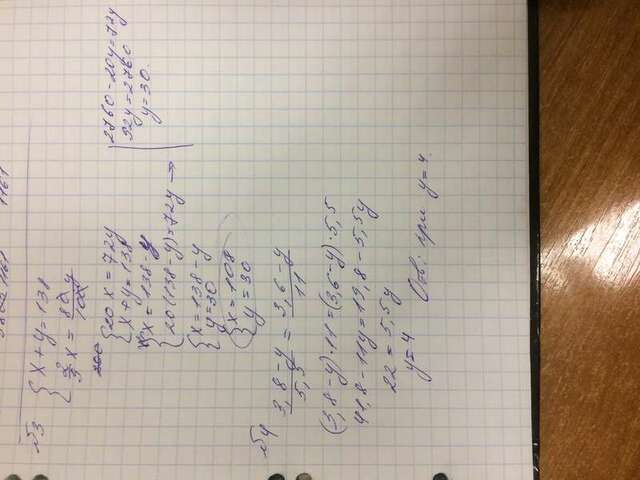 №3 { x + y = 138
2/9 x = 80y/100
{ 20x = 72y
x + y = 138
{ x = 138 - y
20(138 - y) = 72y →
2760 - 20y = 72y
92y = 2760
y = 30.
{ x = 138 - y
y = 30
{ x = 108
y = 30
№4
3,8 - y / 5,5 = 3,6 - y / 11
(3,8 - y) · 11 = (3,6 - y) · 5,5
41,8 - 11y = 19,8 - 5,5y
22 = 5,5y
y = 4
Отв: при y = 4.